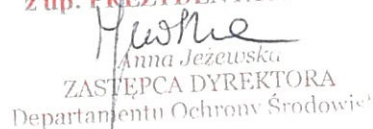 z up. PREZYDENTA
Anna Jeżewska
ZASTĘPCA DYREKTORA
Departamentu Ochrony Środowis